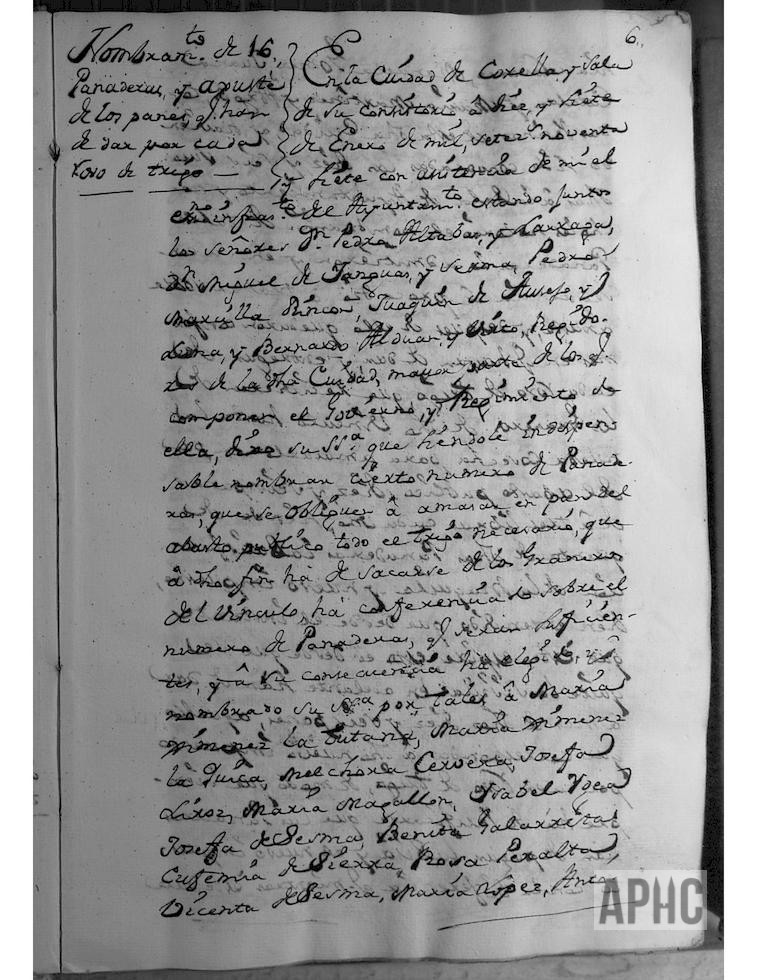 6.
Nombramto. de 16
Panaderas, y apuste
de los panes q. han
de dar por cada
Rovo de trigo
En la Ciudad de Corella, y Sala
de su consistorio, â diez, y siete
de Enero de mil, setezs. noventa
y siete con asistencia de mi el
esno. infrasto. de Ayuntamto. estando juntos
los señores Dn. Pedro Altabas, y Lauzaga,
Dn. Miguel de Janguas, y Sesma, Pedro
Marzilla Rincon, Juaquin de Ausejo, y
Luna, y Bernardo Alduan, y Virto, Regido-
res de la dha Ciudad, mayor parte de los q.
componen el Govierno, y Regimiento de
ella, dixo su Ssa. que siendole indispen
sable nombrar cierto numero de Panade-
ras, que se obliguen â amasar en pan del
abasto publico todo el trigo necesario, que
â dho fin hà de sacarse de los Graneros
del Vinculo, hà conferenciado sobre el
numero de Panaderas, q. seran suficien-
tes, y â su consequencia hà elegido, y
nombrado su Ssa. por tales â Maria
Ximenez la Gutana, Maria Ximenez
la Quica, Melchora Cervera, Josefa
Liroz, Maria Magallon, Ysabel Ygea
Josefa de Sesma, Benita Galarreta
Eufemia de Sierra, Rosa Peralta,
Vicenta de Sesma, Maria Lopez, Anta.
APHC